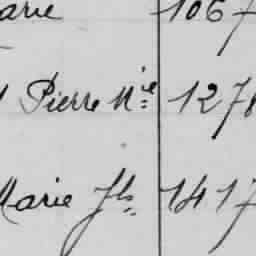 arie 1067
Pierre Nie 1278
Marie fls. 1417